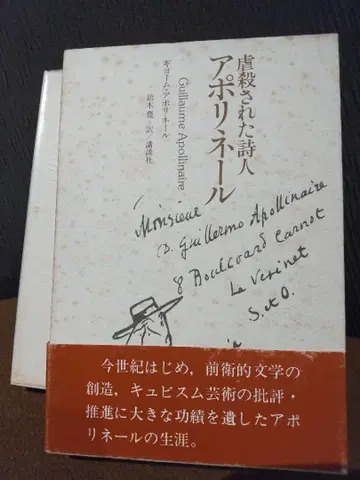 虐殺された詩人
アポリネール
ギヨーム・アポリネール
Guillaume Apollinaire
鈴木豊・訳 講談社
Monsieur
D. Guillermo Apollinaire
8 Boulevard Carnot
Le Vesinet
S. et O.
今世紀はじめ，前衛的文学の
創造，キュビスム芸術の批評・
推進に大きな功績を遺したアポ
リネールの生涯。